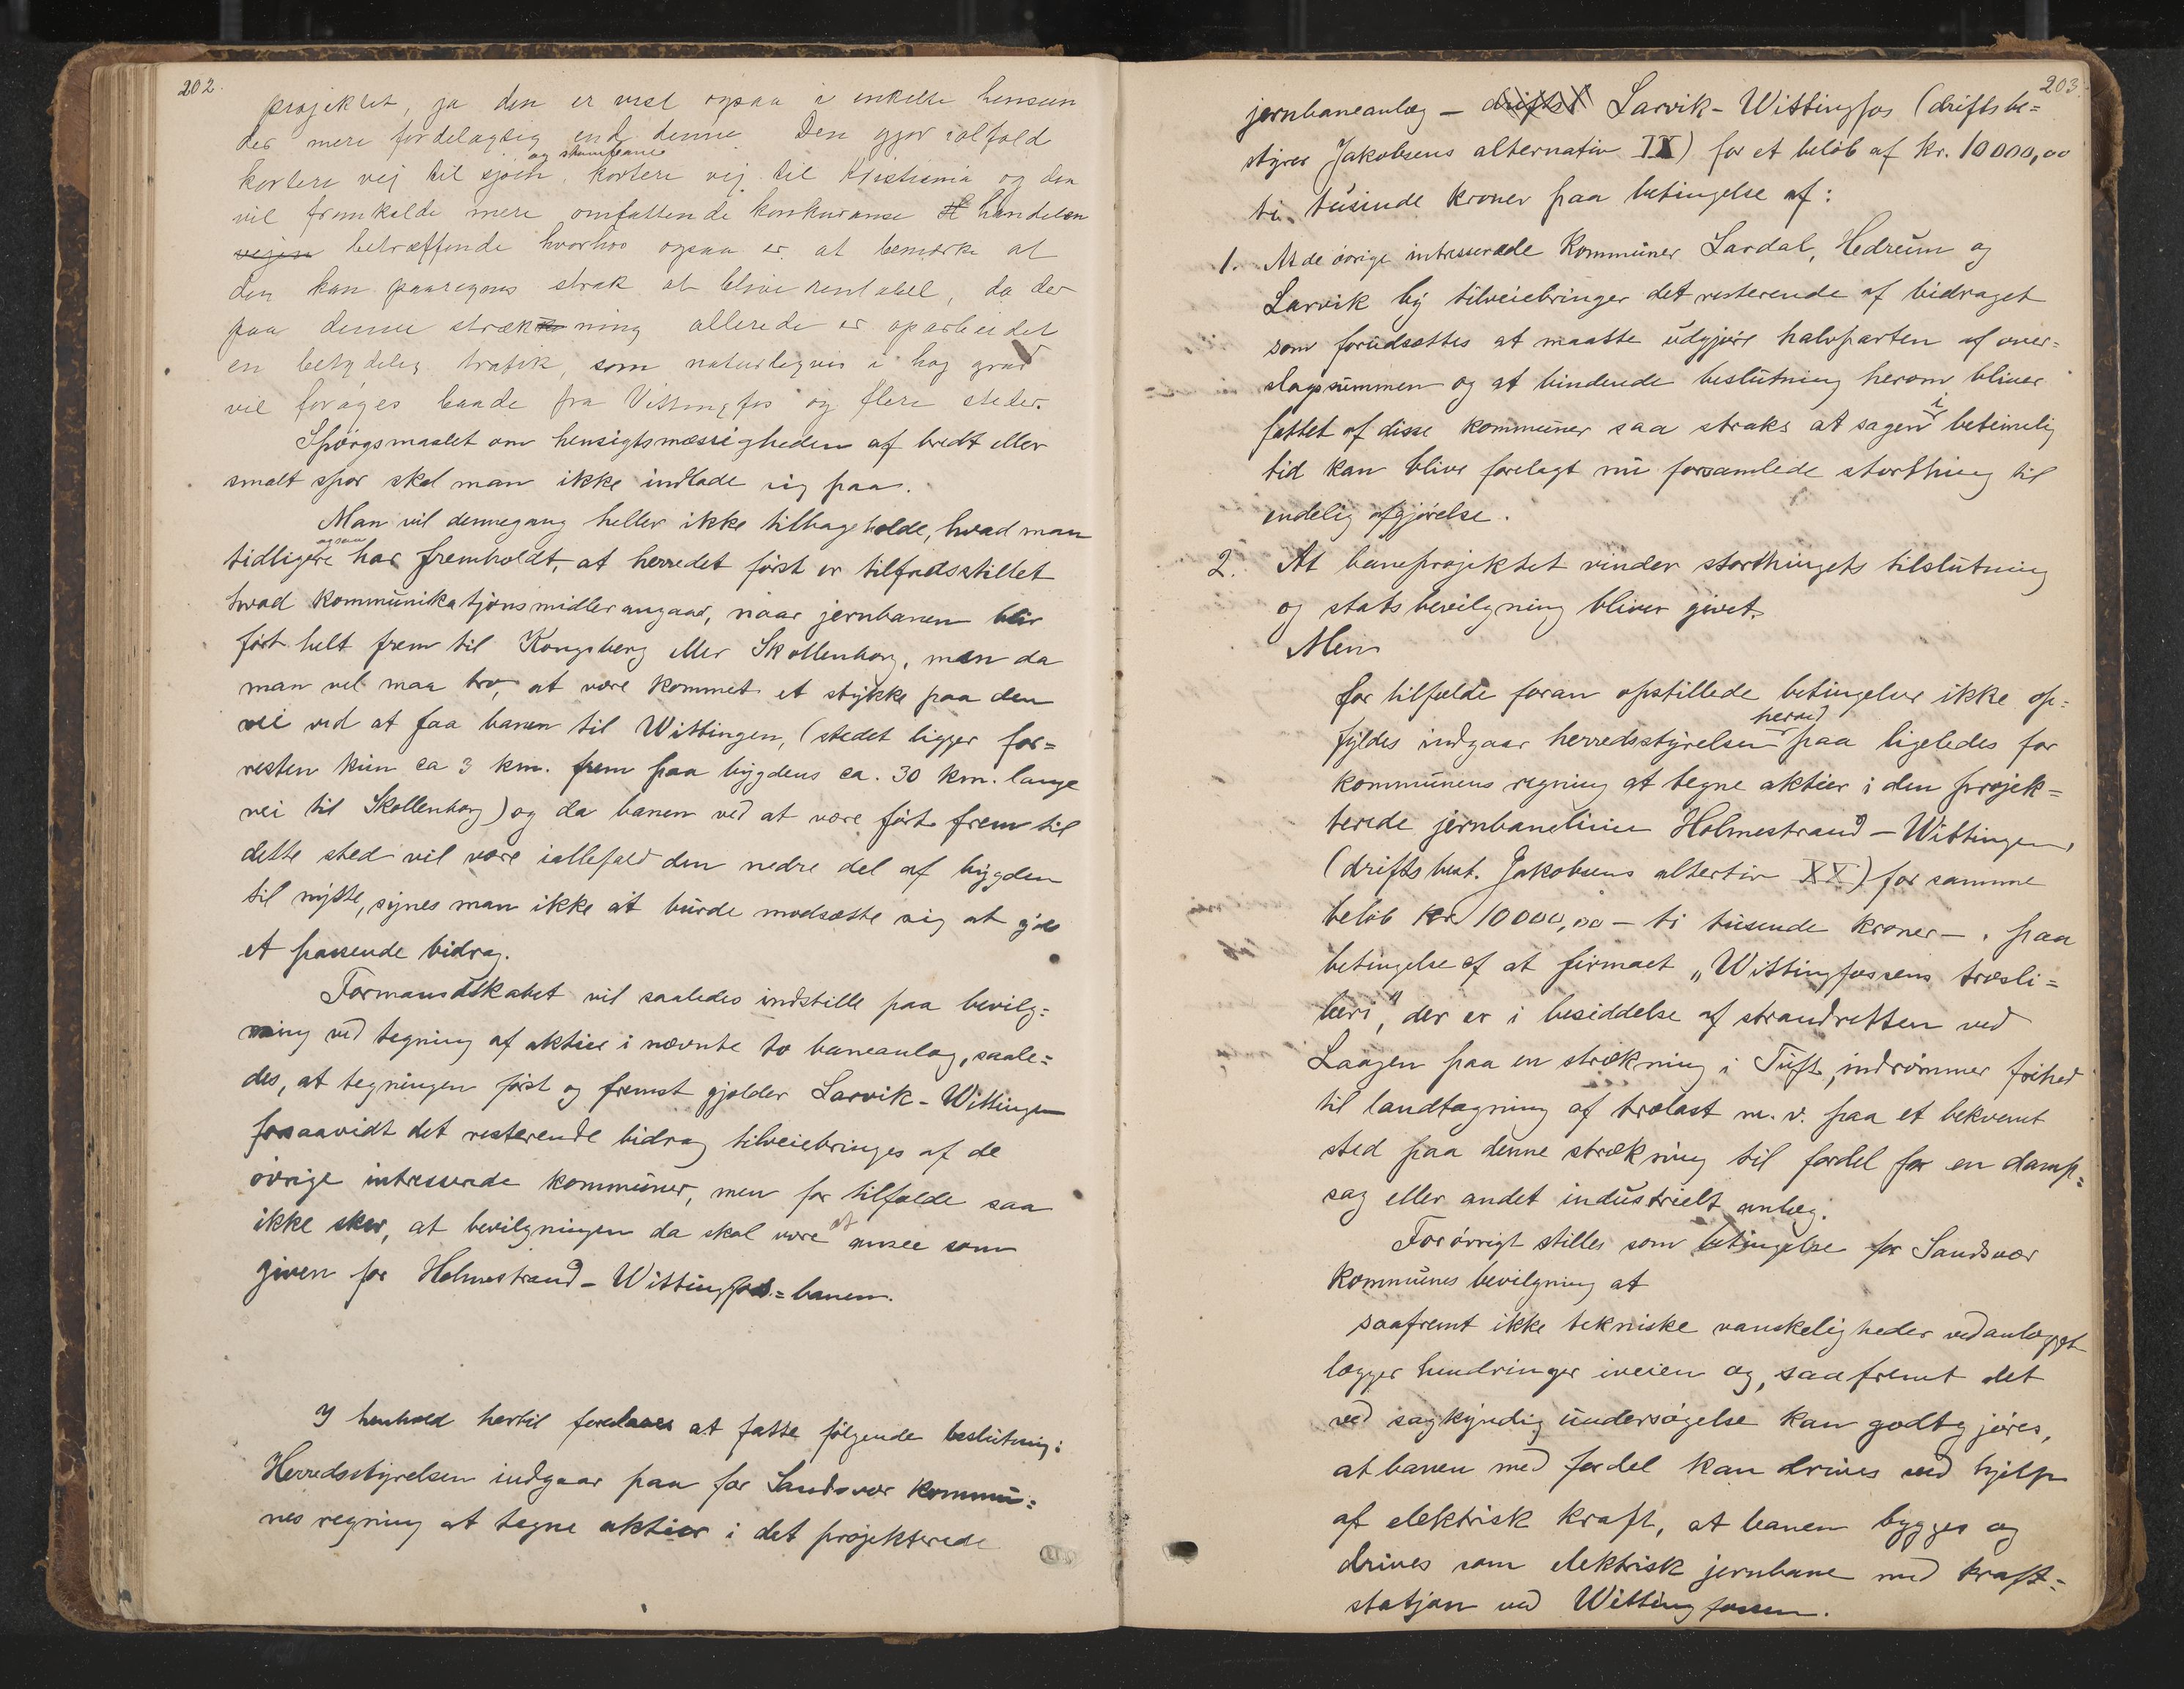 202.
projektet, ja den er vist ogsaa i enkelte hensen
der mere fordelagtig end denne. Den gjør ialfald
og skamfeame
kortere vej til sjøen, kortere vej til Kristiania og den
vil fremkalde mere omfattende konkuranse handelen
vejen betræffende hvorhos ogsaa er at bemærke at
den kan paaregnes strak at blive rentabel, da der
paa denne strækning allerede er oparbeidet
en betydelig trafik, som naturligvis i høg grad
vil forøges baade fra Vittingfos og flere steder.
Spørgsmaalet om hensigtsmæssigheden af bredt eller
smalt spor skal man ikke indlade sig paa.
Man vil dennegang heller ikke tilbageholde, hvad man
ogsaa
tidligere har fremholdt, at herredet først er tilfredsstillet
hvad kommunikatjonsmidler angaar, naar jernbanen blir
ført helt frem til Kongsberg eller Skollenborg, men da
man vel maa tro, at være kommet et stykke paa den
vei ved at faa banen til Wittingen, (stedet ligger for=
resten kun ca 3 km. frem paa bygdens ca. 30 km. lange
vei til Skollenborg) og da banen ved at være ført frem til
dette sted vil være iallefald den nedre del af bygden
til nytte, synes man ikke at burde modsætte sig at give
et passende bidrag.
Formandskabet vil saaledes indstille paa bevilg=
ning ved tegning af aktier i nævnte to baneanlæg, saale=
des, at tegningen først og fremst gjælder Larvik - Wittingen
forsaavidt det resterende bidrag tilveiebringes af de
øvrige intresserede kommuner, men for tilfælde saa
ikke sker, at bevilgningen da skal være at ansee som
given for Holmestrand - Wittingfos = banen.
I henhold hertil foreslaaes at fatte følgende beslutning:
Herredsstyrelsen indgaar paa for Sandsvær kommu=
nes regning at tegne aktier i det projekterede
203.
jernbaneanlæg - drifts Larvik - Wittingfos (driftsbe=
styrer Jakobsens alternativ IX) for et beløb af kr. 10000,00
ti tusinde kroner paa betingelse af:
1. At de øvrige intresserede kommuner Lardal, Hedrum og
Larvik by tilveiebringer det resterende af bidraget
som forudsættes at maatte udgjøre halvparten af over=
slagssummen og at bindende beslutning herom bliver
i
fattet af disse kommuner saa straks at sagen betimelig
tid kan blive forelagt nu forsamlede storthing til
endelig afgjørelse.
2. At baneprojektet vinder storthingets tilslutning
og statsbevilgning bliver givet.
Men
for tilfælde foran opstillede betingelser ikke op=
herved
fyldes indgaar herredsstyrelsen paa ligeledes for
kommunens regning at tegne aktier i den projek=
terede jernbanelinie Holmestrand - Wittingen,
(driftsbest. Jakobsens altertiv XX) for samme
beløb kr 10000,00 - ti tusende kroner - , paa
betingelse af at firmaet "Wittingfossens træsli=
beri", der er i besiddelse af strandretten ved
Laagen paa en strækning i Tuft, indrømmer frihed
til landtagning af trælast m. v. paa et bekvemt
sted paa denne strækning til fordel for en damp=
sag eller andet industrielt anlæg.
Forøvrigt stilles som betingelse for Sandsvær
kommunes bevilgning at
saafremt ikke tekniske vanskeligheder ved anlægget
lægger hindringer iveien og, saafremt det
ved sagkyndig undersøgelse kan godtgjøres,
at banen med fordel kan drives ved hjælp
af elektrisk kraft, at banen bygges og
drives som elektrisk jernbane med kraft=
statjon ved Wittingfossen.